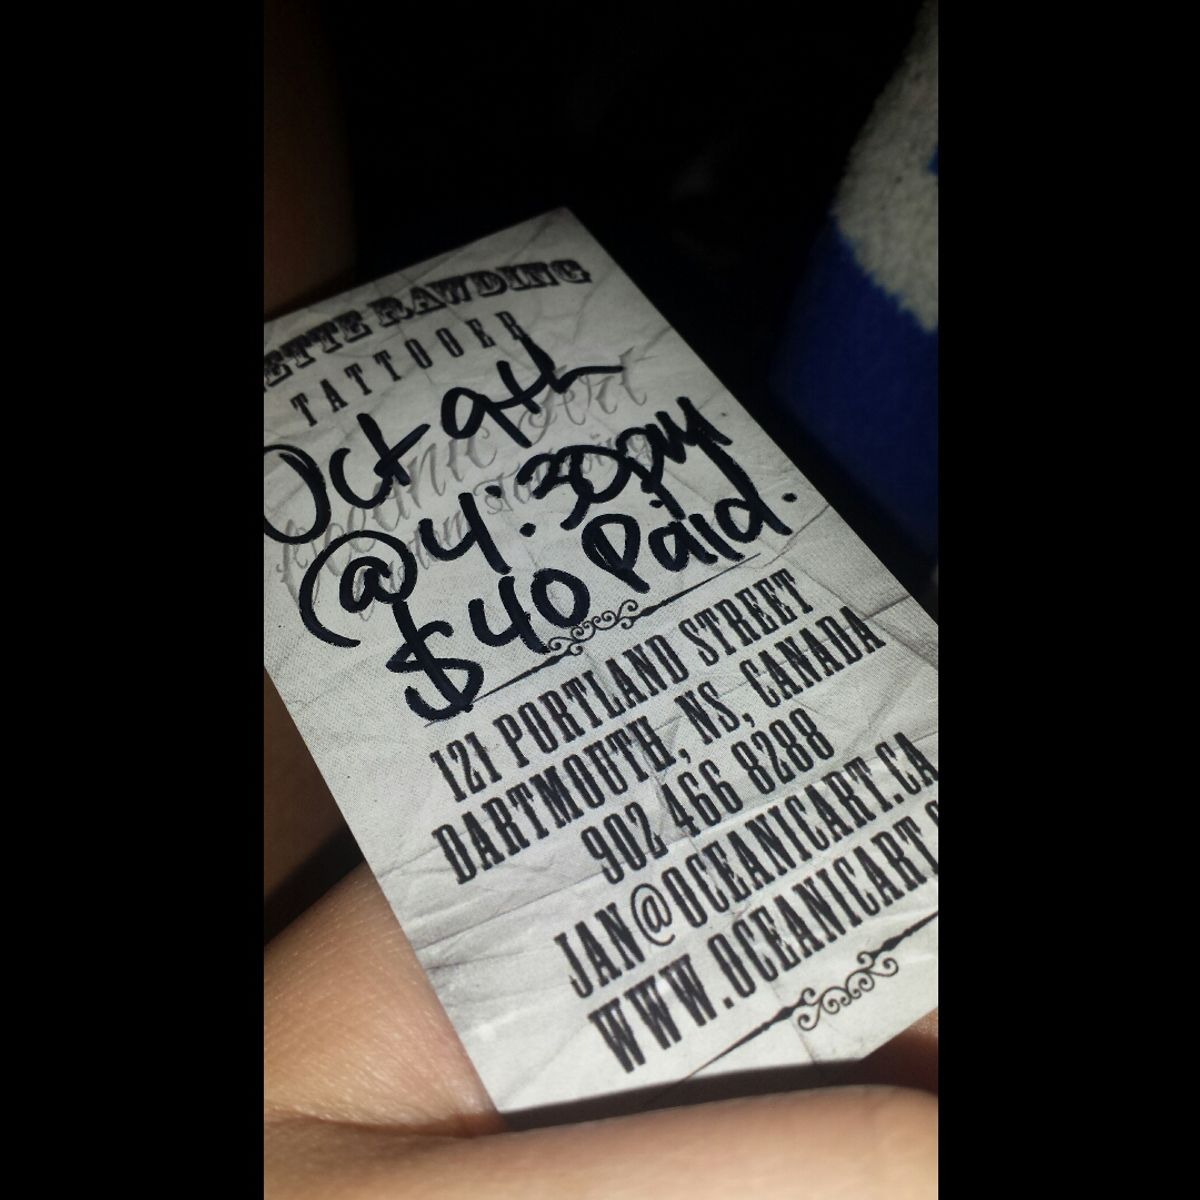 ETTE RAWDING
TATTOOER
Oceanic Art
Custom Tattooing
Oct 9th
@ 4:30pm
$40 Paid.
121 PORTLAND STREET
DARTMOUTH, NS, CANADA
902 466 8288
JAN@OCEANICART.CA
WWW.OCEANICART.